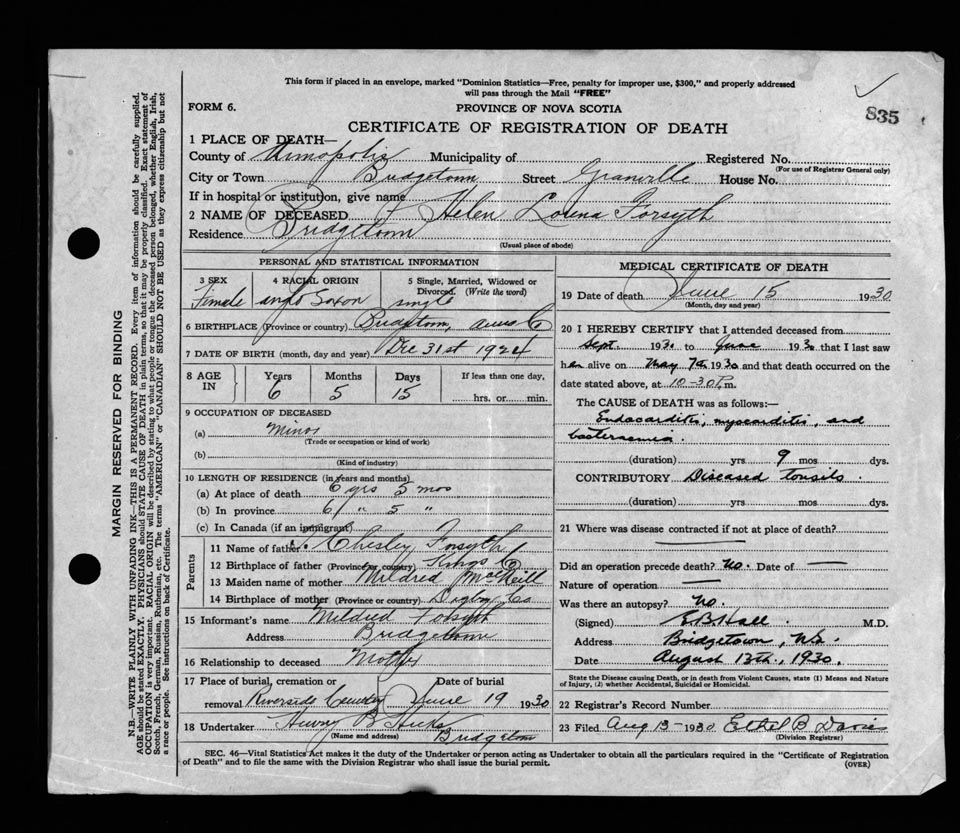 This form if placed in an envelope, marked "Dominion Statistics—Free, penalty for improper use, $300," and properly addressed
will pass through the Mail "FREE"
FORM 6.
PROVINCE OF NOVA SCOTIA
835
CERTIFICATE OF REGISTRATION OF DEATH
1 PLACE OF DEATH—
County of Annapolis Municipality of Registered No.
(For use of Registrar General only)
City or Town Bridgetown Street Granville House No.
If in hospital or institution, give name
2 NAME OF DECEASED Helen Lorena Forsyth
Residence Bridgetown
(Usual place of abode)
PERSONAL AND STATISTICAL INFORMATION
3 SEX 4 RACIAL ORIGIN 5 Single, Married, Widowed or
Divorced. (Write the word)
Female anglo Saxon single
6 BIRTHPLACE (Province or country) Bridgetown, Anna Co
7 DATE OF BIRTH (month, day and year) Dec 31st 1924
8 AGE IN Years Months Days If less than one day,
6 5 15 hrs. or min.
9 OCCUPATION OF DECEASED
(a) Minor
(Trade or occupation or kind of work)
(b)
(Kind of industry)
10 LENGTH OF RESIDENCE (in years and months)
(a) At place of death 6 yrs 5 mos
(b) In province 6 " 5 "
(c) In Canada (if an immigrant)
Parents
11 Name of father Chesley Forsyth
12 Birthplace of father (Province or country) Kings Co
13 Maiden name of mother Mildred McNeill
14 Birthplace of mother (Province or country) Digby Co
15 Informant's name Mildred Forsyth
Address Bridgetown
16 Relationship to deceased Mother
17 Place of burial, cremation or Date of burial
removal Riverside Cemetery June 19 1930
18 Undertaker B Hicks
(Name and address) Bridgetown
MEDICAL CERTIFICATE OF DEATH
19 Date of death June 15 1930
(Month, day and year)
20 I HEREBY CERTIFY that I attended deceased from
Sept. 193 to June 1930 that I last saw
her alive on May 7th 1930 and that death occurred on the
date stated above, at 10-30 P.m.
The CAUSE of DEATH was as follows:—
Endocarditis, myocarditis, and
bacteraemia.
(duration) yrs 9 mos dys.
CONTRIBUTORY Diseased tonsils.
(duration) yrs mos dys.
21 Where was disease contracted if not at place of death?
Did an operation precede death? No. Date of —
Nature of operation —
Was there an autopsy? No.
(Signed) E B Hall M.D.
Address Bridgetown, N.S.
Date August 13th, 1930.
State the Disease causing Death, or in death from Violent Causes, state (1) Means and Nature
of Injury, (2) whether Accidental, Suicidal or Homicidal.
22 Registrar's Record Number
23 Filed Aug 13 - 1930 Ethel B
(Division Registrar)
SEC. 46—Vital Statistics Act makes it the duty of the Undertaker or person acting as Undertaker to obtain all the particulars required in the "Certificate of Registration
of Death" and to file the same with the Division Registrar who shall issue the burial permit.
(OVER)
MARGIN RESERVED FOR BINDING
N.B.—WRITE PLAINLY WITH UNFADING INK—THIS IS A PERMANENT RECORD. Every item of information should be carefully supplied.
AGE should be stated EXACTLY. PHYSICIANS should STATE CAUSE OF DEATH in plain terms, so that it may be properly classified. Exact statement of
OCCUPATION is very important. RACIAL ORIGIN will be described by stating to what people or tongue the deceased person belonged, whether English, Irish,
Scotch, French, German, Russian, Ruthenian, etc. The terms "AMERICAN" or "CANADIAN" SHOULD NOT BE USED as they express citizenship but not
a race or people. See instructions on back of Certificate.